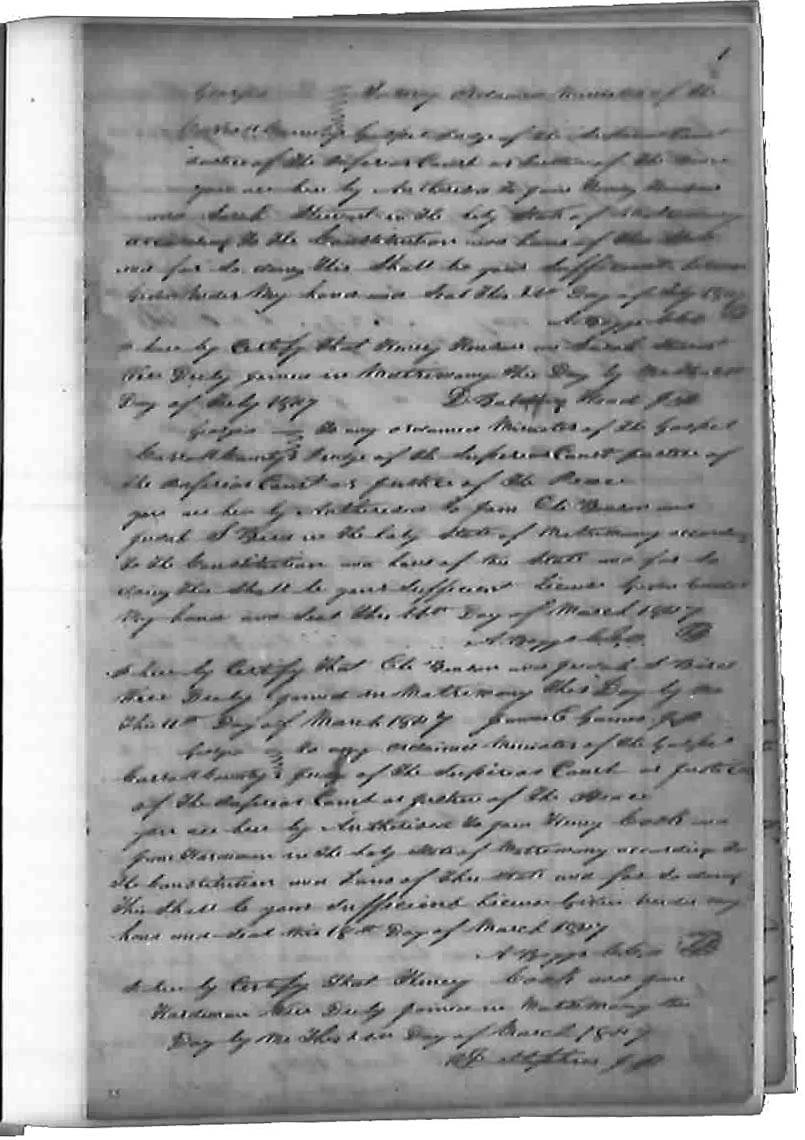 1
Georgia To any ordained Minister of the
Carroll County Gospel Judge of the Superior Court
Justice of the Inferior Court or Justice of the Peace
you are here by Authorised to join Henry
and Sarah Stewart in the holy State of Matrimony
according to the Constitution and Laws of this State
and for So doing this Shall be your Sufficient License
Given Under My hand and Seal This Day of July 1847
A. Boggs
I here by Certify that Henry and Sarah Stewart
Were Duly joined in Matrimony this Day by Me
Day of July 1847 D. Head J.P.
Georgia To any ordained Minister of the Gospel
Carroll County Judge of the Superior Court Justice of
the Inferior Court or Justice of the Peace
you are here by Authorised to join Eli Benson and
Judah S in the holy State of Matrimony according
to the Constitution and Laws of this State and for So
doing this Shall be your Sufficient License Given Under
My hand and Seal this Day of March 1847
A. Boggs
I here by Certify that Eli Benson and Judah S
Were Duly joined in Matrimony This Day by Me
This 11th Day of March 1847 J.P.
Georgia To any ordained Minister of the Gospel
Carroll County Judge of the Superior Court or Justice
of the Inferior Court or Justice of the Peace
you are here by Authorised to join Henry Cook and
Jane Hardeman in the holy State of Matrimony according to
the Constitution and Laws of this State and for So doing
This Shall be your Sufficient License Given Under my
hand and Seal this 18th Day of March 1847
A. Boggs
I here by Certify That Henry Cook and Jane
Hardeman Were Duly joined in Matrimony this
Day by Me This Day of March 1847
J.P.